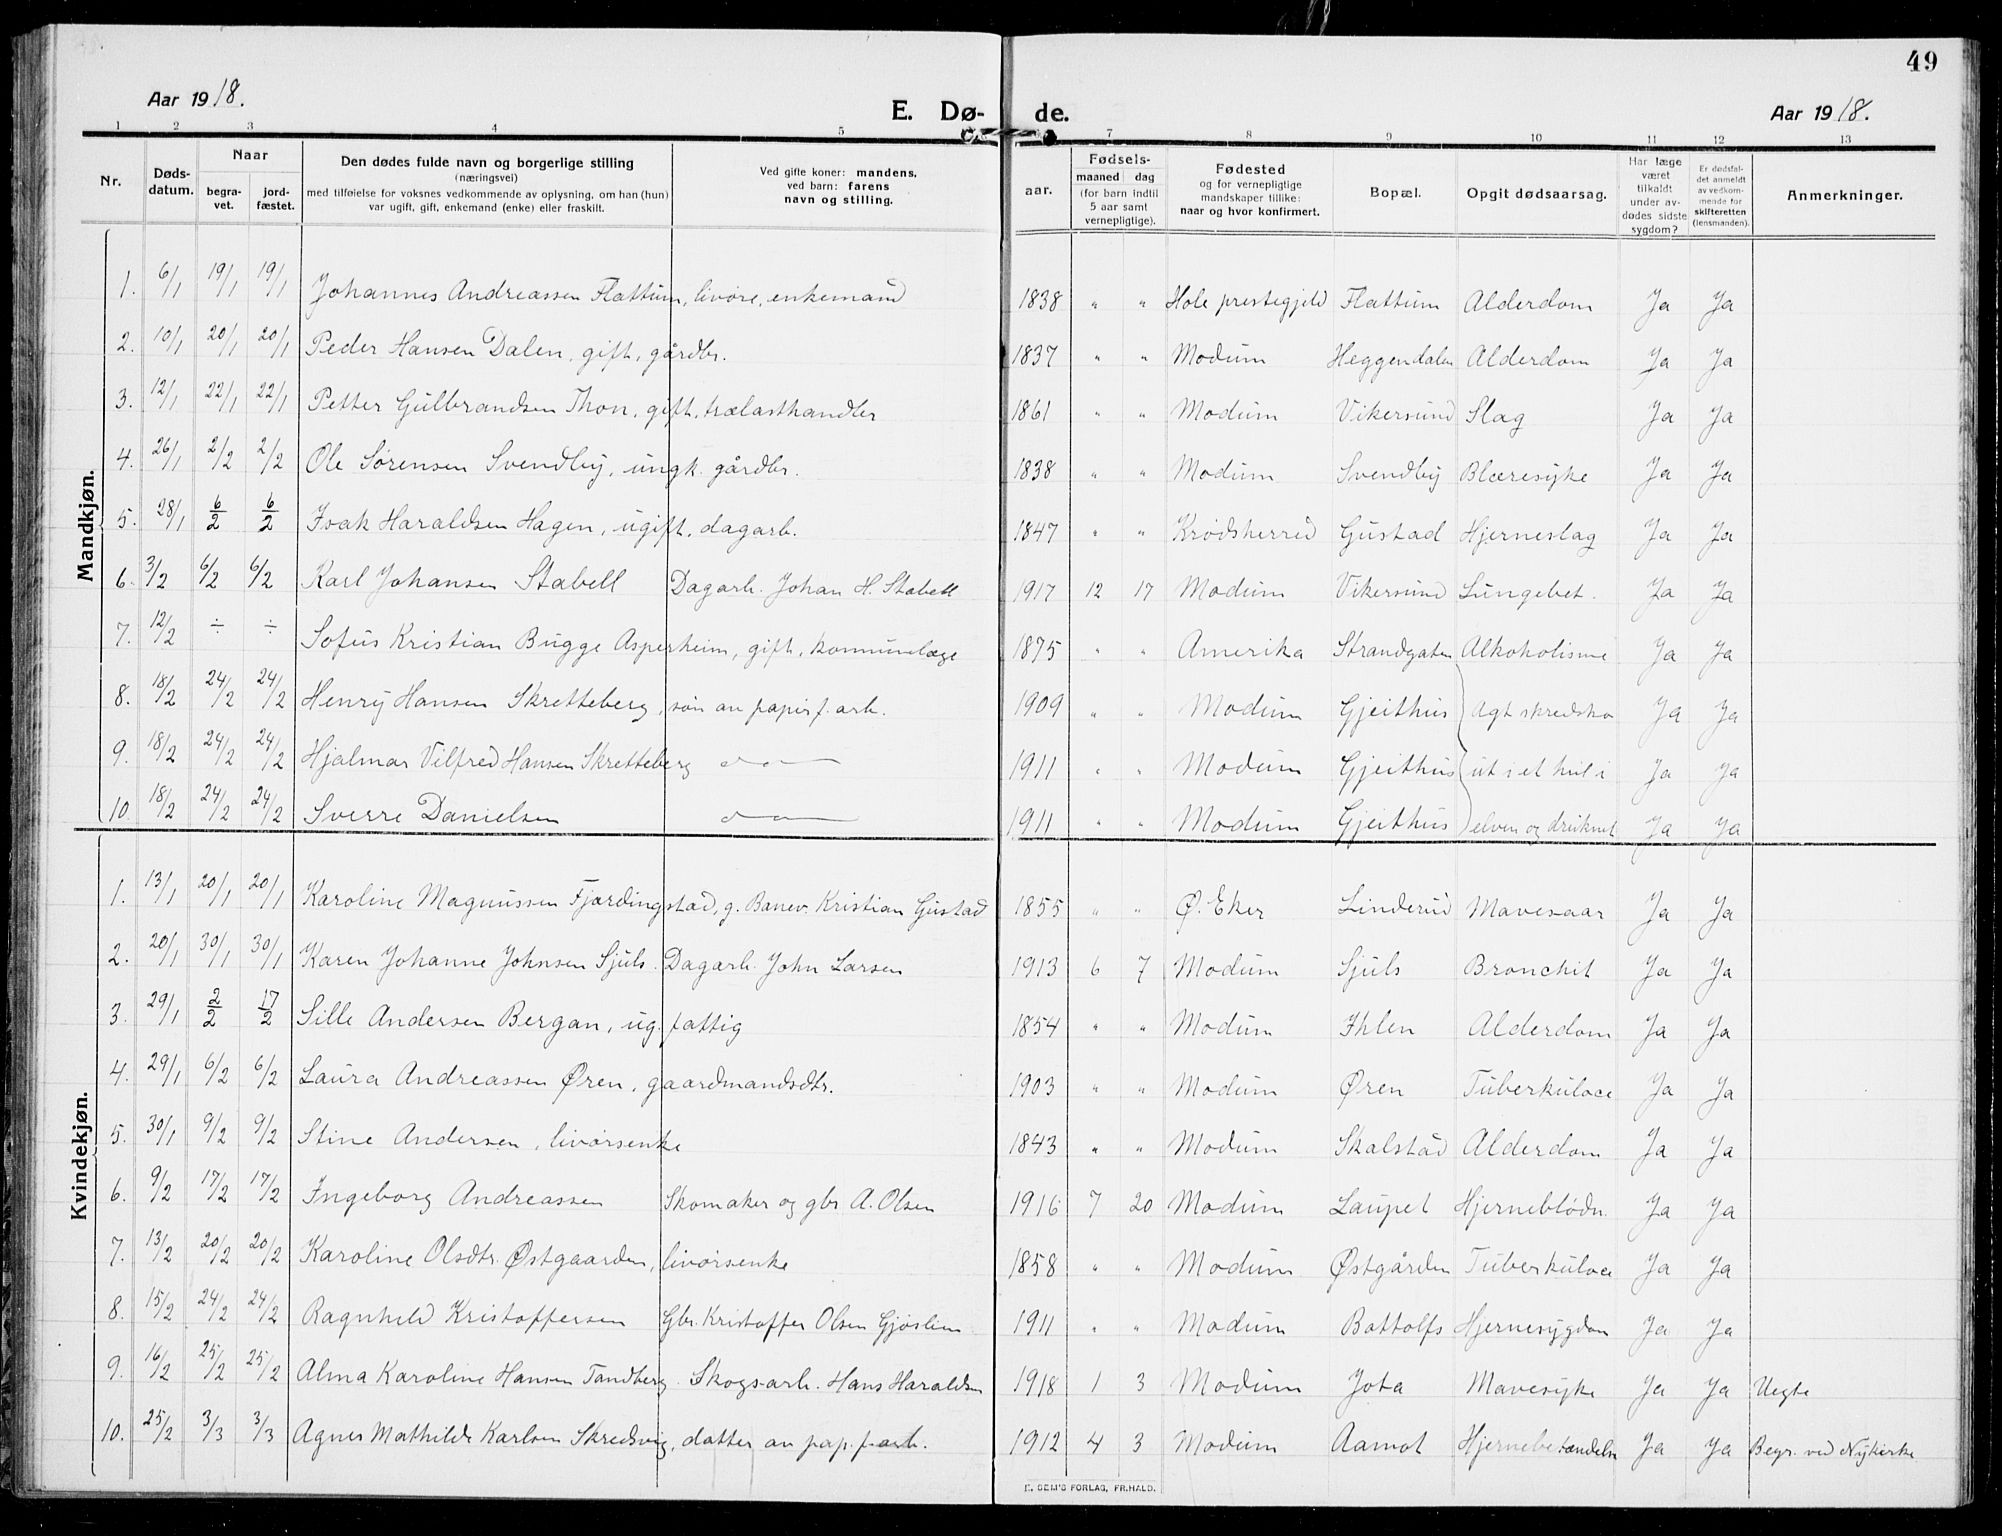 49
Aar 1918.
E. Dø- de.
Aar 1918.
1 2 3 4 5 7 8 9 10 11 12 13
Nr.
Døds-datum.
Naar
begra-vet.
jord-fæstet.
Den dødes fulde navn og borgerlige stilling
(næringsvei)
med tilføielse for voksnes vedkommende av oplysning, om han (hun)
var ugift, gift, enkemand (enke) eller fraskilt.
Ved gifte koner: mandens,
ved barn: farens
navn og stilling.
aar.
Fødsels-
maaned dag
(for barn indtil
5 aar samt
vernepligtige).
Fødested
og for vernepligtige
mandskaper tillike:
naar og hvor konfirmert.
Bopæl.
Opgit dødsaarsag.
Har læge
været
tilkaldt
under av-
dødes sidste
sygdom?
Er dødsfal-
det anmeldt
av vedkom-
mende for
skifteretten
(lensmanden).
Anmerkninger.
Mandkjøn.
1. 6/1 19/1 19/1 Johannes Andreassen Flattum, livøre, enkemand 1838 " " Hole prestegjeld Flattum Alderdom Ja Ja
2. 10/1 20/1 20/1 Peder Hansen Dalen, gift, gårdbr. 1837 " " Modum Heggendalen Alderdom Ja Ja
3. 12/1 22/1 22/1 Petter Gulbrandsen Thon, gift, trælasthandler 1861 " " Modum Vikersund Slag Ja Ja
4. 26/1 2/2 2/2 Ole Sørensen Svendby, ungk. gårdbr. 1838 " " Modum Svendby Blæresyke Ja Ja
5. 28/1 6/2 6/2 Isak Haraldsen Hagen, ugift, dagarb. 1847 " " Krødsherred Gustad Hjerneslag Ja Ja
6. 3/2 6/2 6/2 Karl Johansen Stabell Dagarb. Johan H. Stabell 1917 12 17 Modum Vikersund Lungebet. Ja Ja
7. 12/2 ÷ ÷ Sofus Kristian Bugge Asperheim, gift, kommunelæge 1875 " " Amerika Strandgaten Alkoholisme Ja Ja
8. 18/2 24/2 24/2 Henry Hansen Skretteberg, søn av papirf.arb. 1909 " " Modum Gjeithus Agt skredsko Ja Ja
9. 18/2 24/2 24/2 Hjalmar Vilfred Hansen Skretteberg 1911 " " Modum Gjeithus ut i et hul i Ja Ja
10. 18/2 24/2 24/2 Sverre Danielsen 1911 " " Modum Gjeithus elven og druknet Ja Ja
Kvindekjøn.
1. 13/1 20/1 20/1 Karoline Magnussen Fjærdingstad, g. Banev. Kristian Gustad 1855 " " Ø. Eker Linderud Mavesaar Ja Ja
2. 20/1 30/1 30/1 Karen Johanne Johnsen Sjuls. Dagarb. John Larsen 1913 6 7 Modum Sjuls Bronchit Ja Ja
3. 29/1 2/2 17/2 Sille Andersen Bergan, ug. fattig 1854 " " Modum Ihlen Alderdom Ja Ja
4. 29/1 6/2 6/2 Laura Andreassen Øren, gaardmandsdtr. 1903 " " Modum Øren Tuberkuloce Ja Ja
5. 30/1 9/2 9/2 Stine Andersen, livørsenke 1843 " " Modum Skalstad Alderdom Ja Ja
6. 9/2 17/2 17/2 Ingeborg Andreassen Skomaker og gbr A. Olsen 1916 7 20 Modum Laupet Hjerneblødn. Ja Ja
7. 13/2 20/2 20/2 Karoline Olsdtr. Østgaarden, livørsenke 1858 " " Modum Østgården Tuberkuloce Ja Ja
8. 15/2 24/2 24/2 Ragnhild Kristoffersen Gbr. Kristoffer Olsen Gjøslien 1911 " " Modum Bottolfs Hjernesygdom Ja Ja
9. 16/2 25/2 25/2 Alma Karoline Hansen Tandberg. Skogsarb. Hans Haraldsen 1918 1 3 Modum Jota Mavesyke Ja Ja Uegte
10. 25/2 3/3 3/3 Agnes Mathilde Karlsen Skredsvig, datter av pap.f.arb. 1912 4 3 Modum Aamot Hjernebetændelse Ja Ja Begr. ved Nykirke
E. SEM'S FORLAG, FR.HALD.